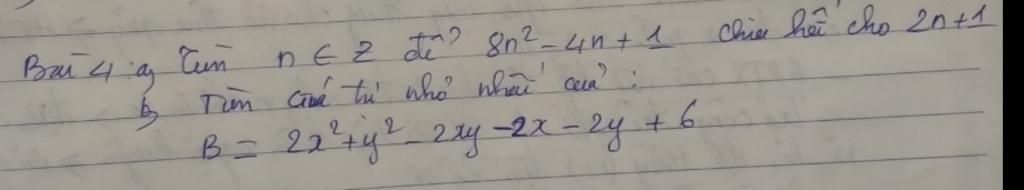 Bài 4: a, Tìm n ∈ Z để 8n² - 4n + 1 chia hết cho 2n+1
b, Tìm giá trị nhỏ nhất của :
B = 2x² + y² - 2xy - 2x - 2y + 6